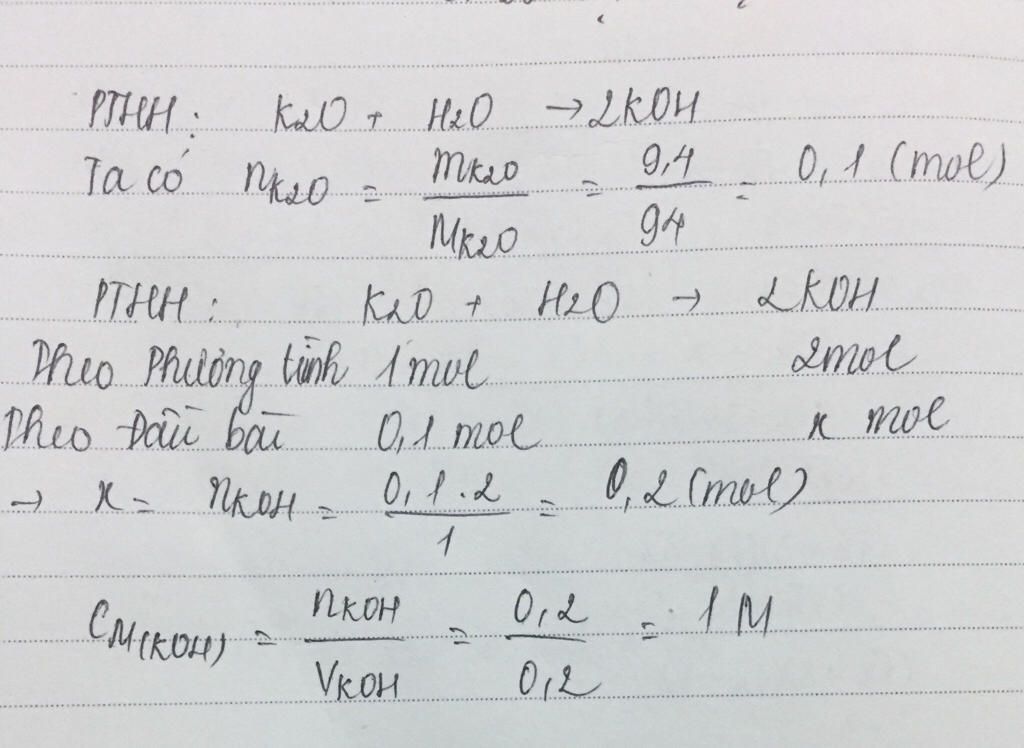 PTHH: K2O + H2O → 2KOH
Ta có nK2O = mK2O / MK2O = 9,4 / 94 = 0,1 (mol)
PTHH: K2O + H2O → 2KOH
Theo phương tình 1mol 2mol
Theo Đầu bài 0,1 mol x mol
→ x = nKOH = 0,1.2 / 1 = 0,2 (mol)
CM(KOH) = nKOH / VKOH = 0,2 / 0,2 = 1 M